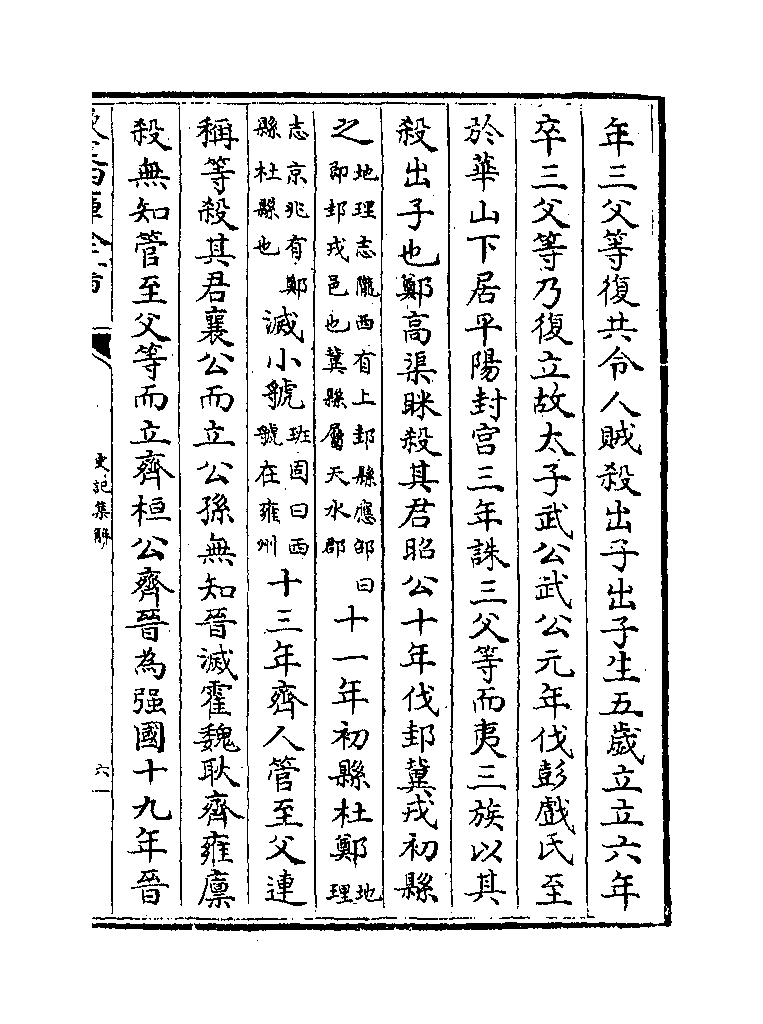 年三父等復共令人賊殺出子出子生五歲立立六年
卒三父等乃復立故太子武公武公元年伐彭戲氏至
於華山下居平陽封宮三年誅三父等而夷三族以其
殺出子也鄭高渠眯殺其君昭公十年伐邽冀戎初縣
之地理志隴西有上邽縣應邵曰即邽戎邑也冀縣屬天水郡十一年初縣杜鄭地理
志京兆有鄭縣杜縣也滅小虢班固曰西虢在雍州十三年齊人管至父連
稱等殺其君襄公而立公孫無知晉滅霍魏耿齊雍廩
殺無知管至父等而立齊桓公齊晉為强國十九年晉
史記集解
六